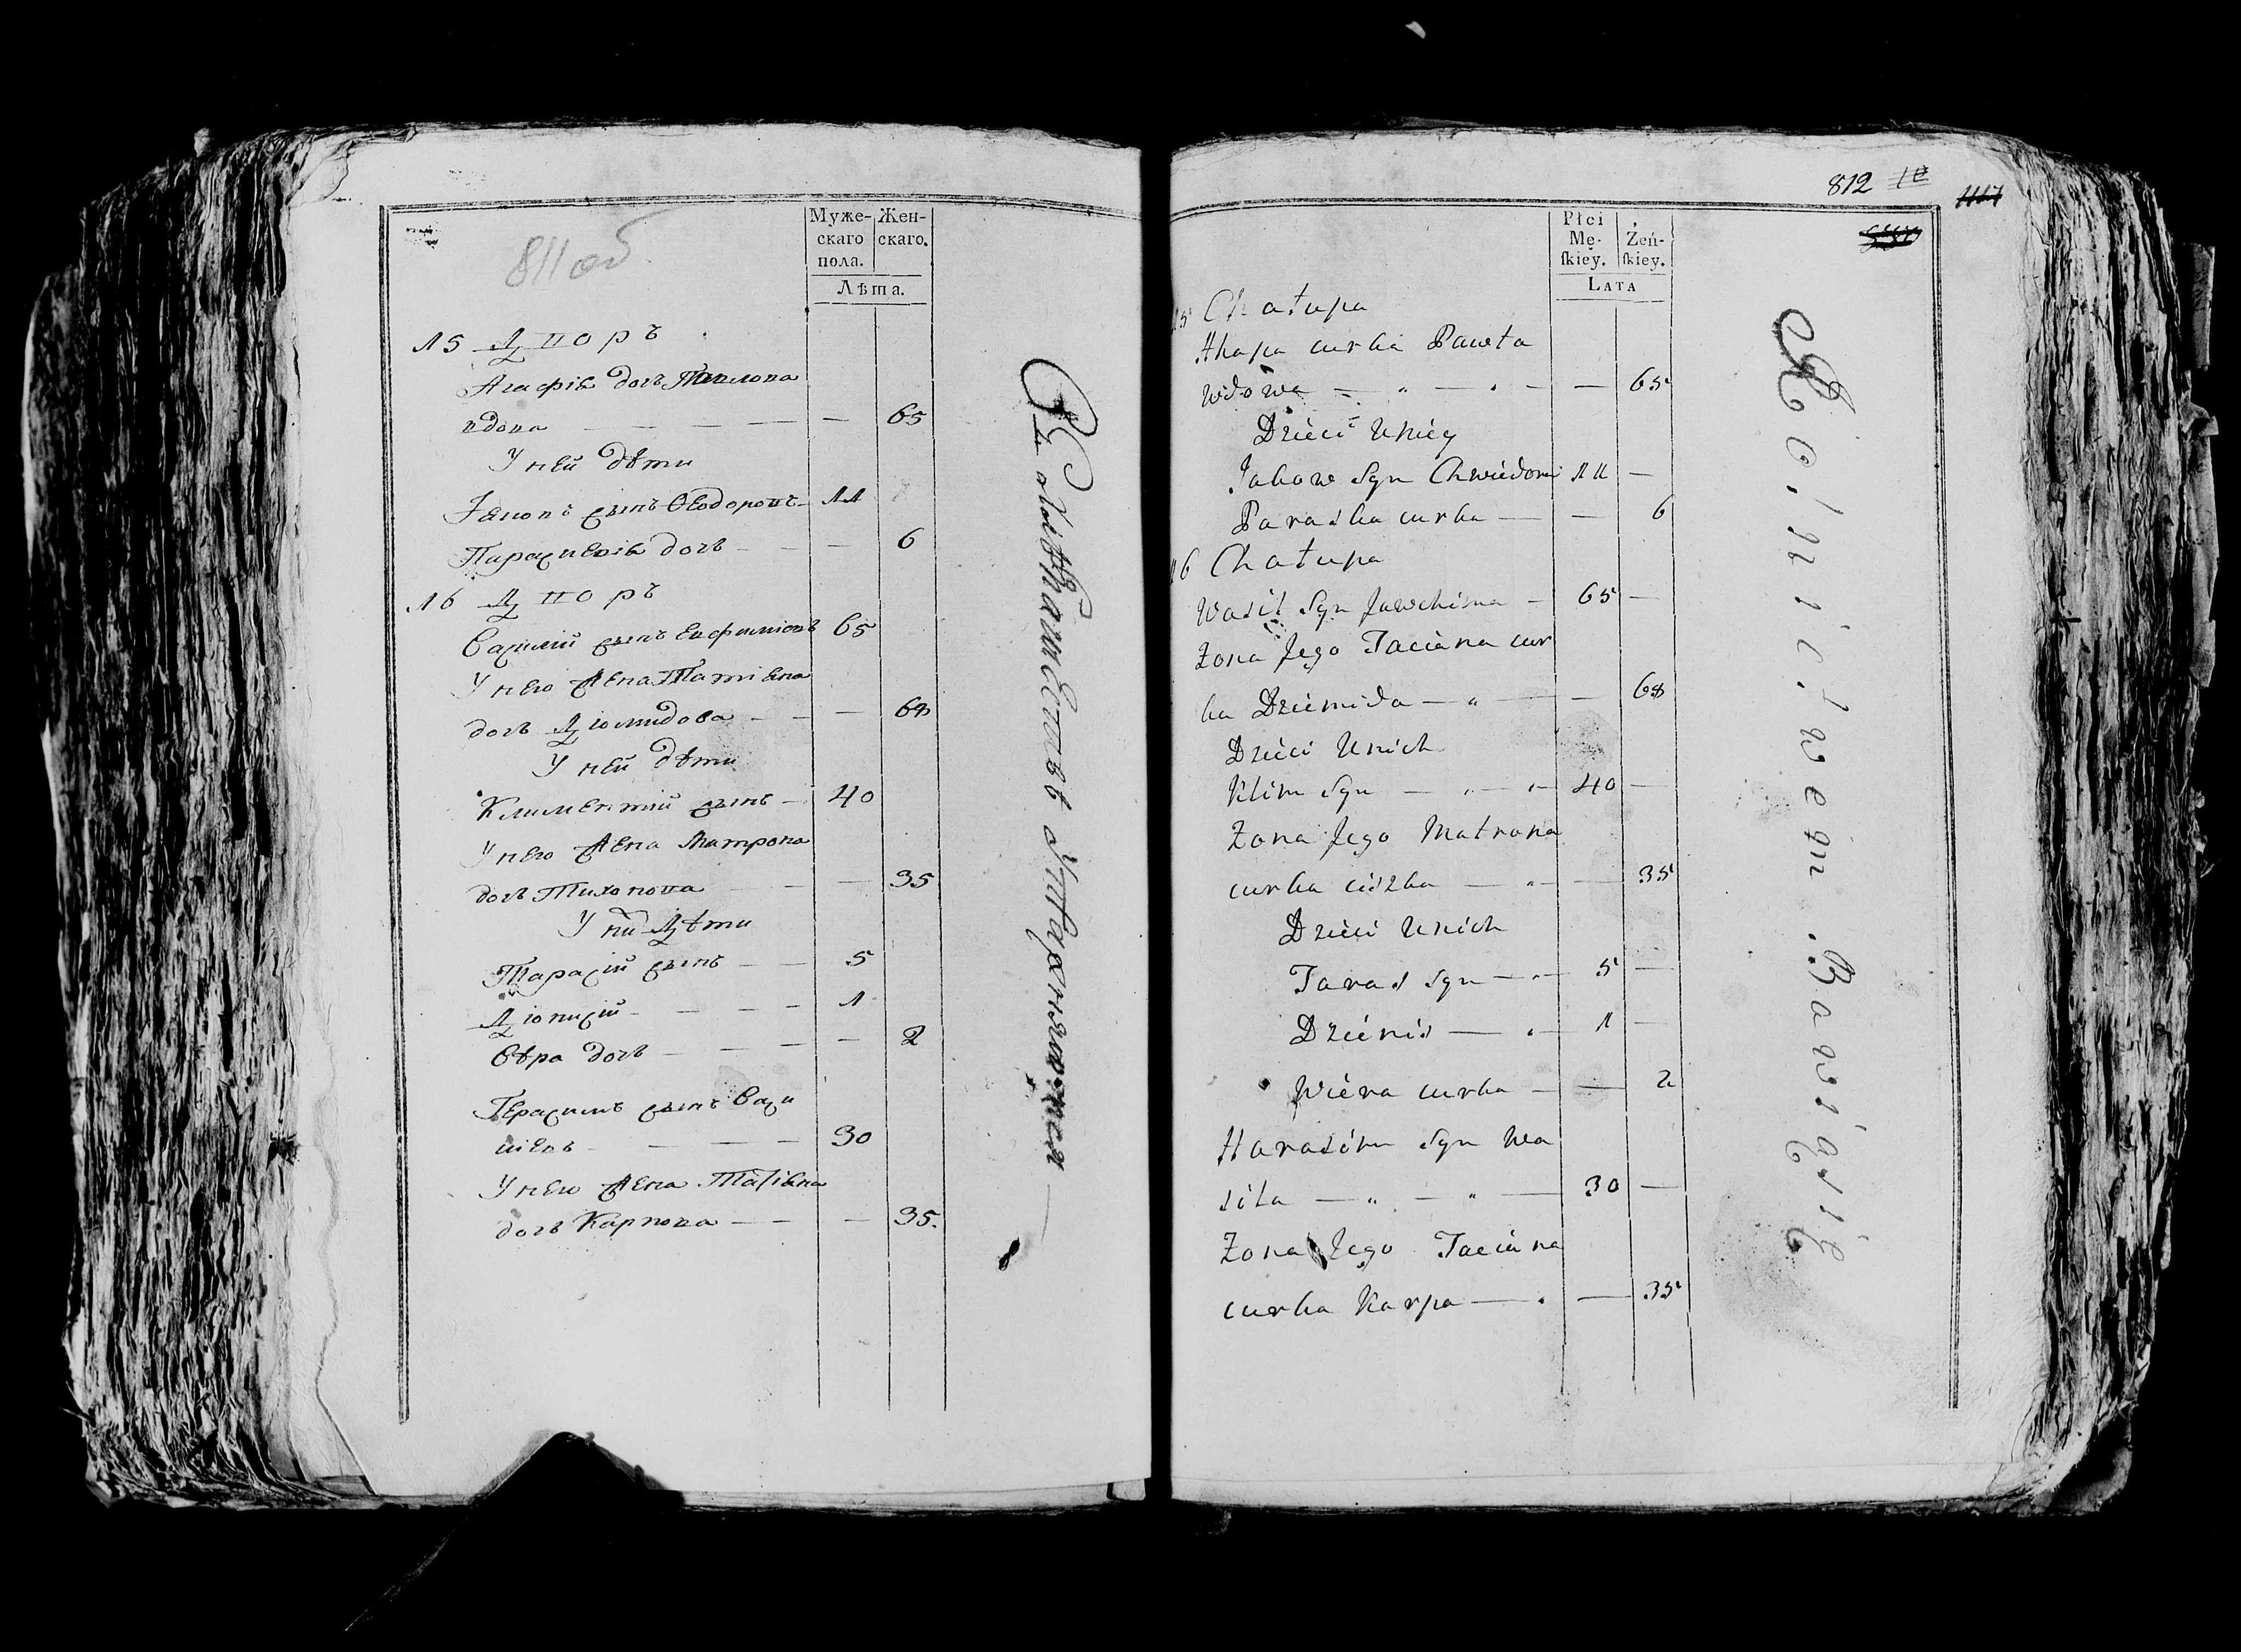 811 об
Муже- Жен-
скаго скаго.
пола.
Лѣта.
15 Дворъ
Агафія дочь Павлова
вдова — — — — — 65
У ней дѣти
Іаковъ сынъ Ѳеодоровъ 11
Параскевія дочь — — 6
16 Дворъ
Василій сынъ Евфиміовъ 65
У него жена Татіяна
дочь Діомидова — — — 68
У ней дѣти
Климентій сынъ — 40
У него жена Матрона
дочь Тихонова — — — 35
У ни Дѣти
Тарасій сынъ — — 5
Діонисій — — — — 1
Вѣра дочь — — — — 2
Герасимъ сынъ Васи
ліевъ — — — — 30
У него жена Татіяна
дочь Карпова — — — 35.
въ хлѣбопашествѣ упражняются
812
Płci
Mę- Żeń-
skiey. skiey.
LATA
15 Chałupa
Ahapa curka Pawła
wdowa — „ — — — 65
Dzieci Uniey
Jakow Syn Chwiedora 11 —
Paraska curka — — 6
16 Chałupa
Wasil Syn Jawchima — 65 —
Zona Jego Taciana cur
ka Dziemida — „ — — 68
Dzieci Unich
Klim Syn — „ — „ 40 —
Zona Jego Matrona
curka Ciszka — „ — 35
Dzieci Unich
Taras Syn — „ 5 —
Dzienis — „ 1 —
Wiera curka — — 2
Harasim Syn Wa
sila — „ — „ — 30 —
Zona Jego Taciana
curka Karpa — „ — 35
Rolnictwem Bawią się